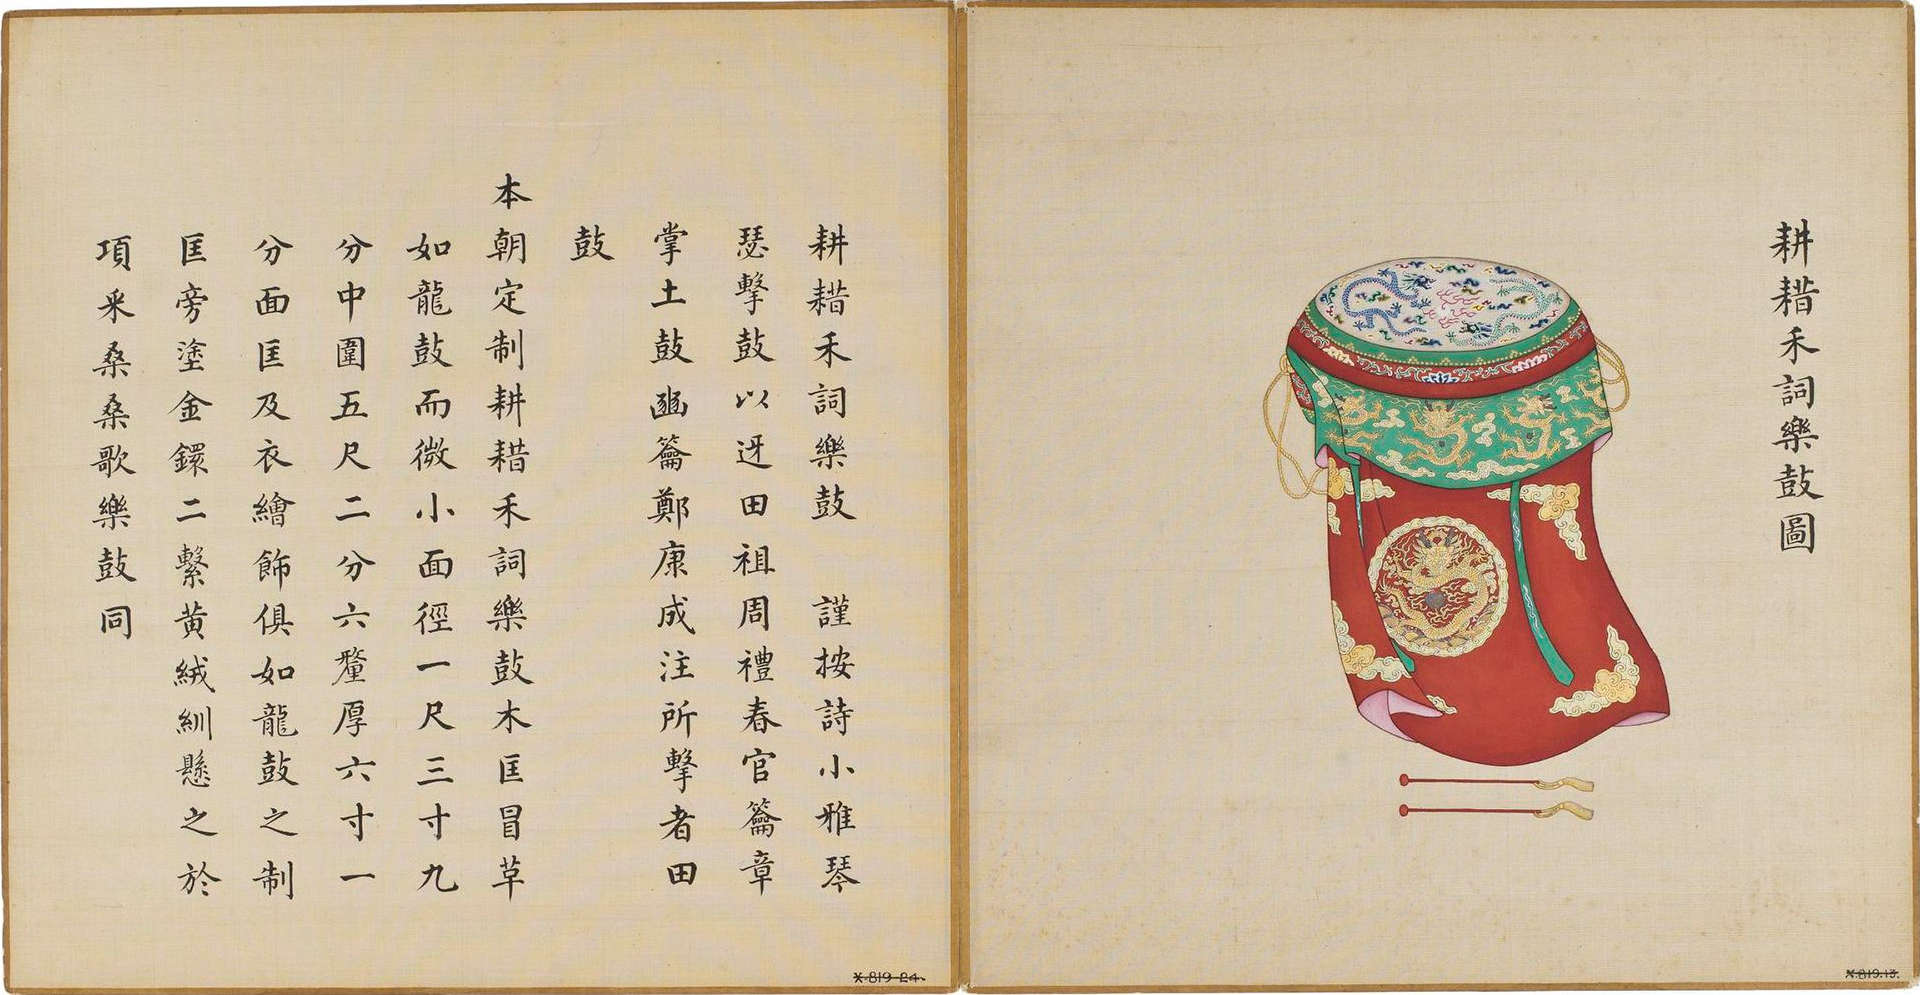 耕耤禾詞樂鼓圖
耕耤禾詞樂鼓　謹按詩小雅琴
瑟擊鼓以迓田祖周禮春官籥章
掌土鼓豳籥鄭康成注所擊者田
鼓
本朝定制耕耤禾詞樂鼓木匡冒革
如龍鼓而微小面徑一尺三寸九
分中圍五尺二分六釐厚六寸一
分面匡及衣繪飾俱如龍鼓之制
匡旁塗金鐶二繫黃絨紃懸之於
項采桑桑歌樂鼓同
X.819-24.
X.819.13.